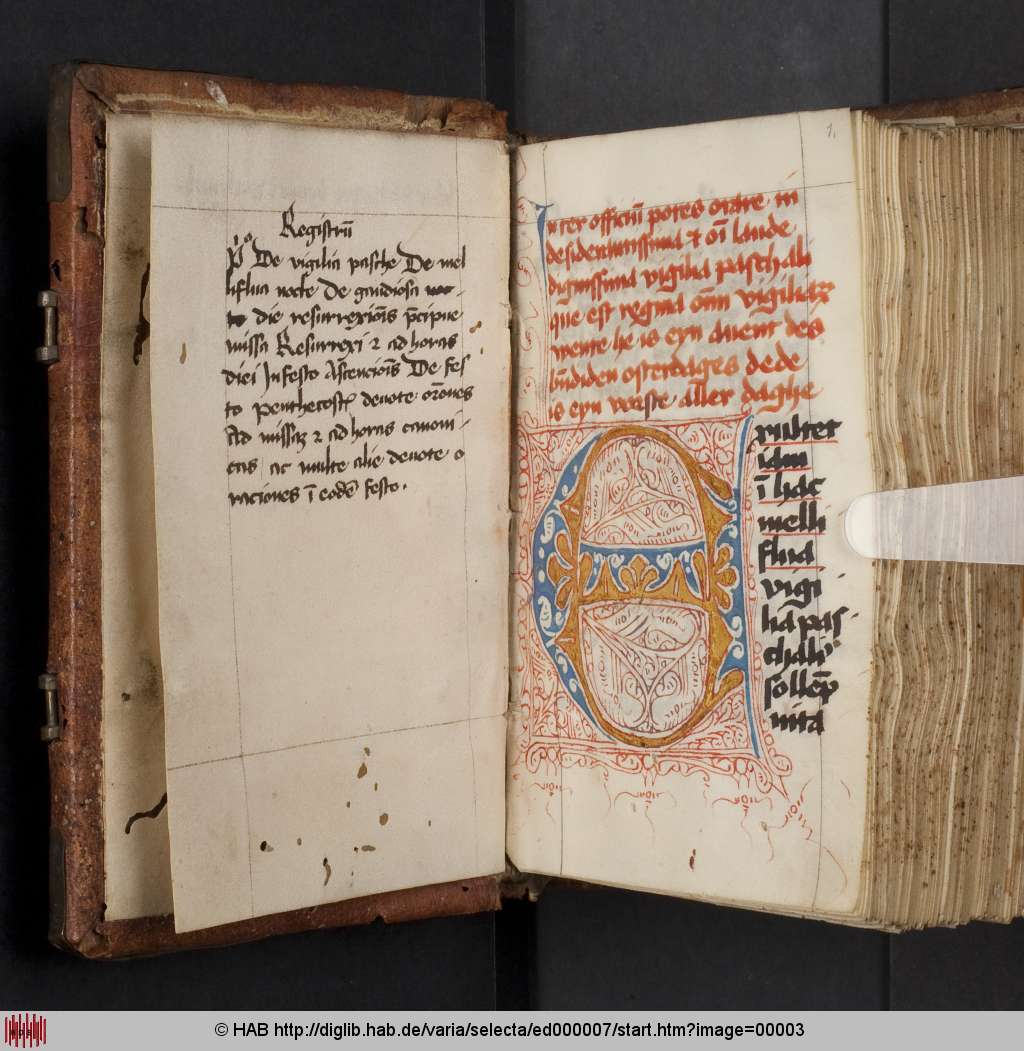 Registrū
Pº De vigilia pasche De mel
liflua nocte De gaudiosa noc-
te die resurrexiōis p̄cipue
missa Resurrexi ⁊ ad horas
diei In festo Ascenciōis De fes
to penthecost devote orōnes
Ad missaꝫ ⁊ ad horas canoni-
cas ac multe alie devote o
raciones ī eodē festo.
1.
Inter officiū potes orare in
desiderantissima ⁊ oī laude
dignissima vigilia paschali
que est regina oīm vigiliaꝝ
wente he is eyn avent des
hilliden osterdages de de
is eyn vorste aller daghe
Exulter
iam
ī hac
melli
flua
vigi
lia pas
chali
sollēp
nita
© HAB http://diglib.hab.de/varia/selecta/ed000007/start.htm?image=00003